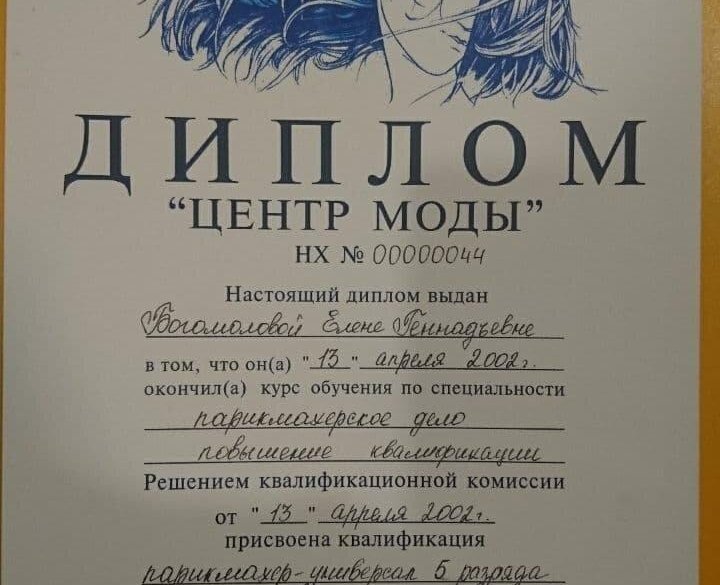 ДИПЛОМ
“ЦЕНТР МОДЫ”
НХ № 00000044
Настоящий диплом выдан
Богомоловой Елене Геннадьевне
в том, что он(а) "13" апреля 2002г.
окончил(а) курс обучения по специальности
парикмахерское дело
повышение квалификации
Решением квалификационной комиссии
от "13" апреля 2002г.
присвоена квалификация
парикмахер-универсал 5 разряда